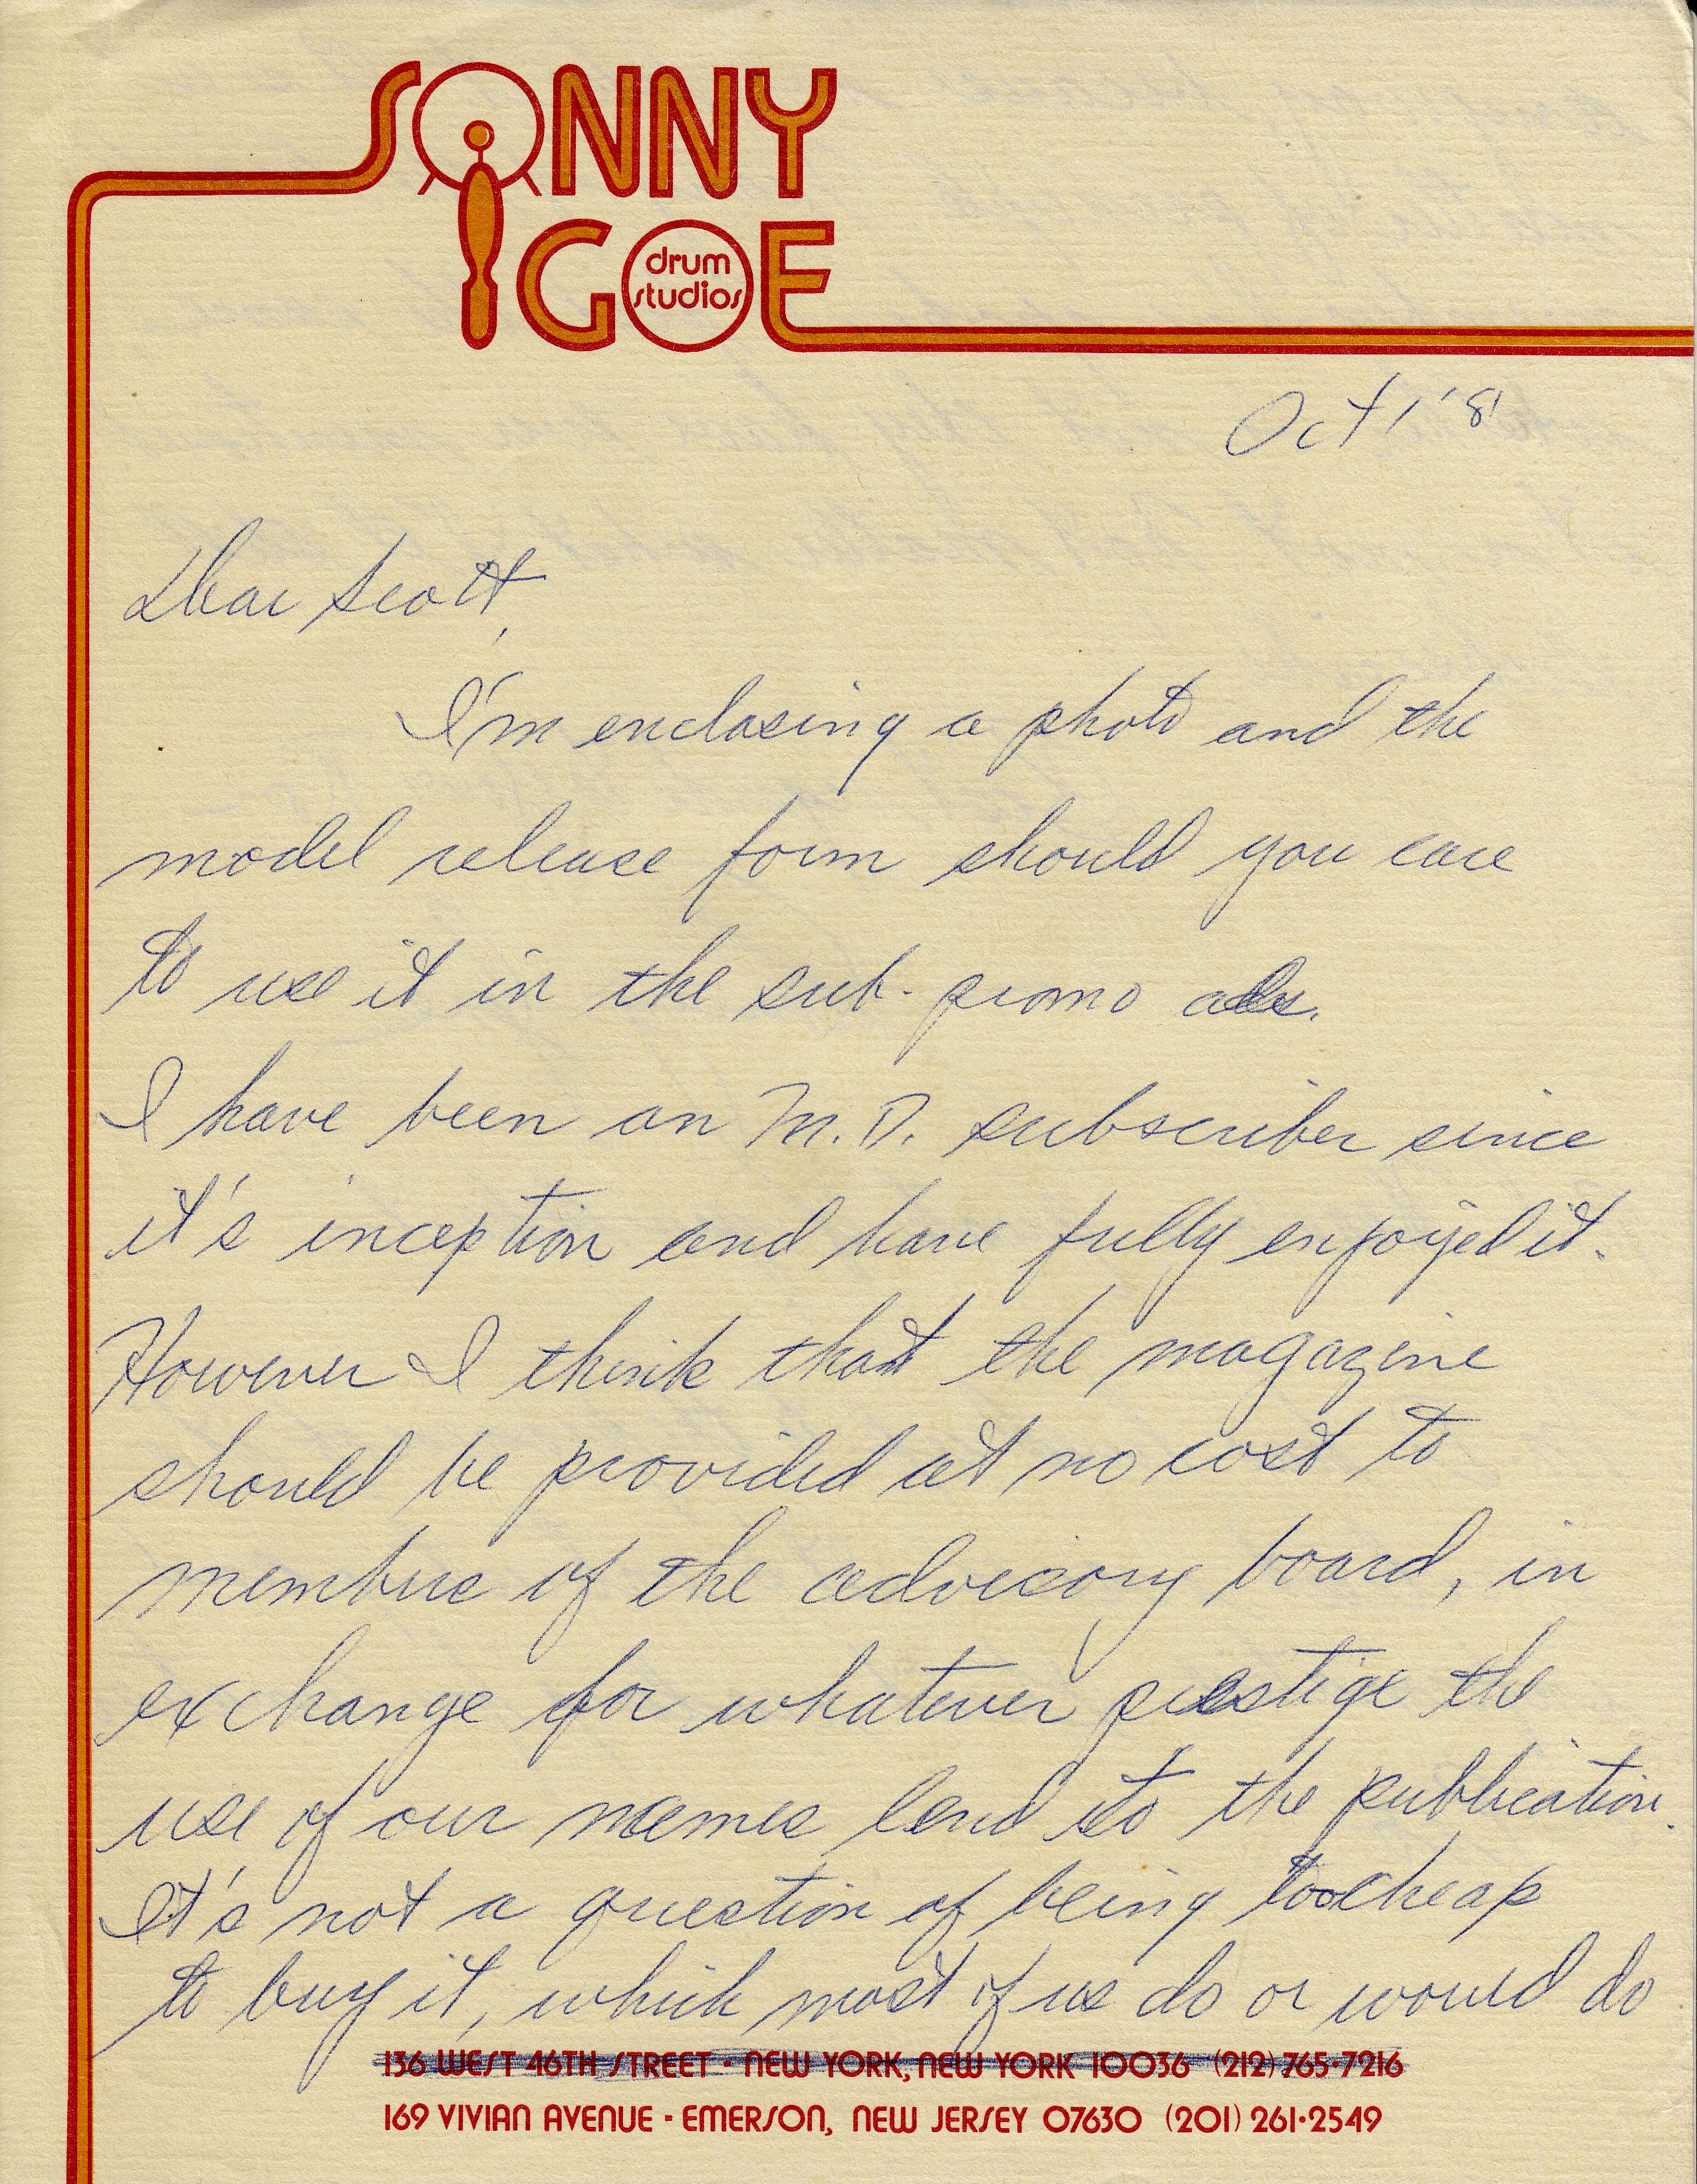 SONNY
IGOE
drum
studios
Oct 1 '81
Dear Scott,
I'm enclosing a photo and the
model release form should you care
to use it in the sub-promo ads.
I have been an M.D. subscriber since
it's inception and have fully enjoyed it.
However I think that the magazine
should be provided at no cost to
members of the advisory board, in
exchange for whatever prestige the
use of our names lend to the publication.
It's not a question of being too cheap
to buy it, which most of us do or would do
136 WEST 46TH STREET · NEW YORK, NEW YORK 10036 (212) 765·7216
169 VIVIAN AVENUE - EMERSON, NEW JERSEY 07630 (201) 261·2549